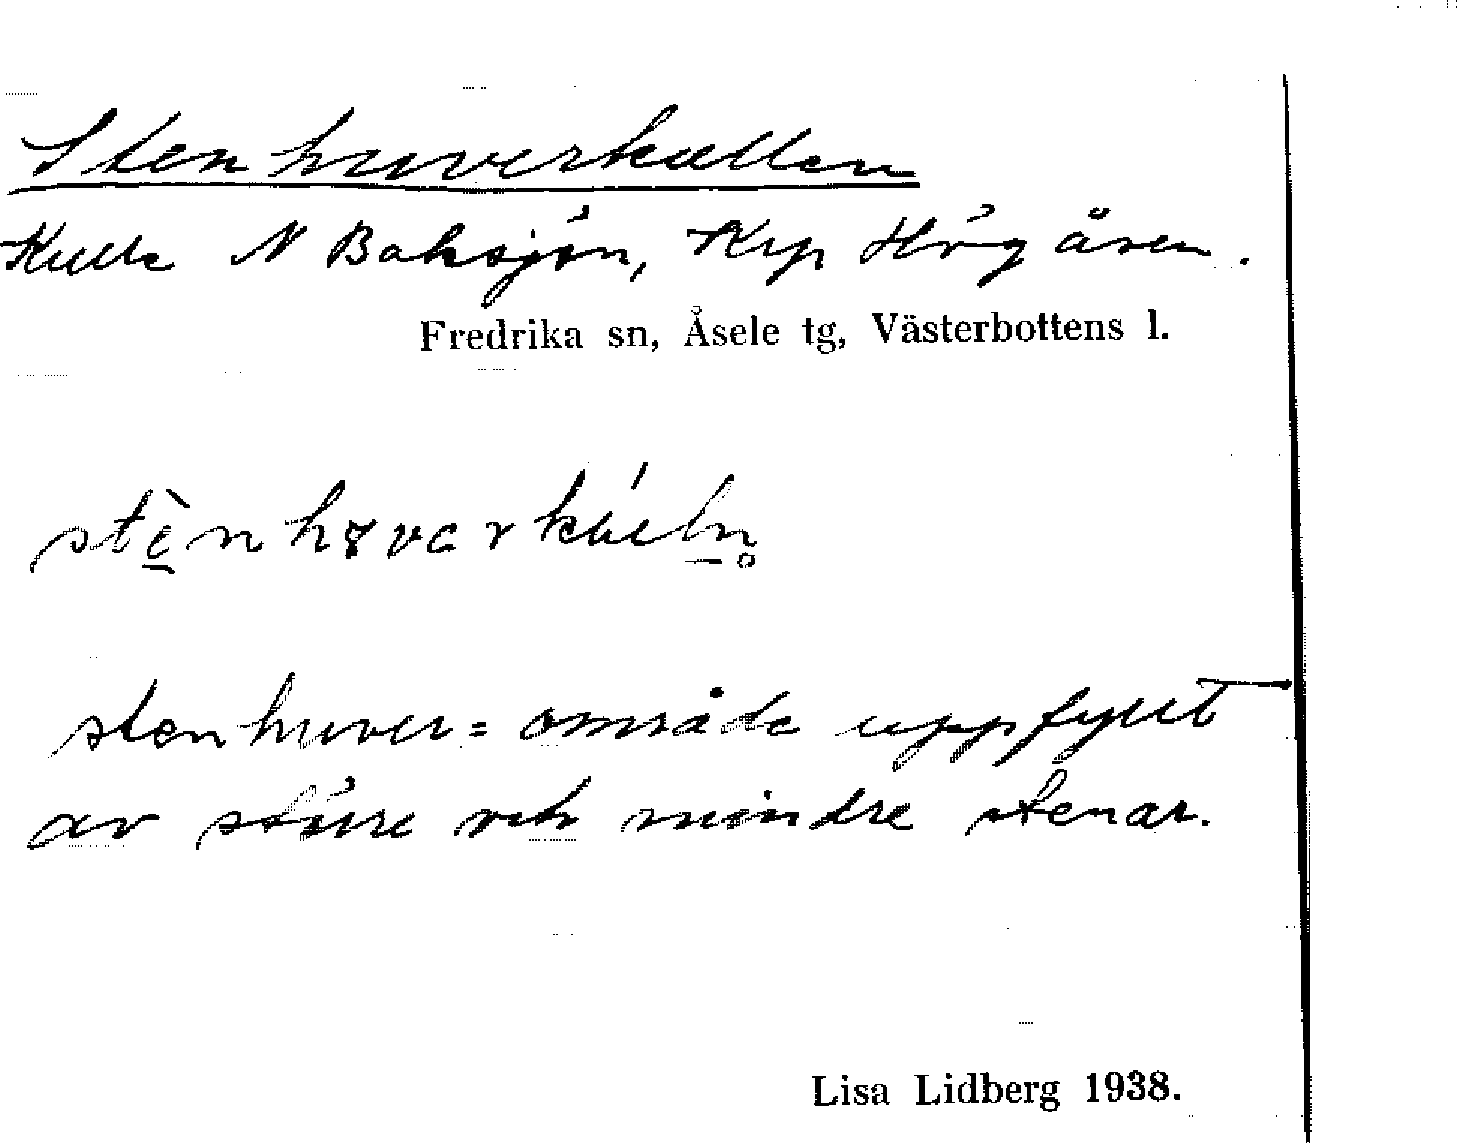 Stenhuverkullen
Kulle N Baksjön, Krp Högåsen.
Fredrika sn, Åsele tg, Västerbottens l.
stenhuver = område uppfyllt
av större och mindre stenar.
Lisa Lidberg 1938.